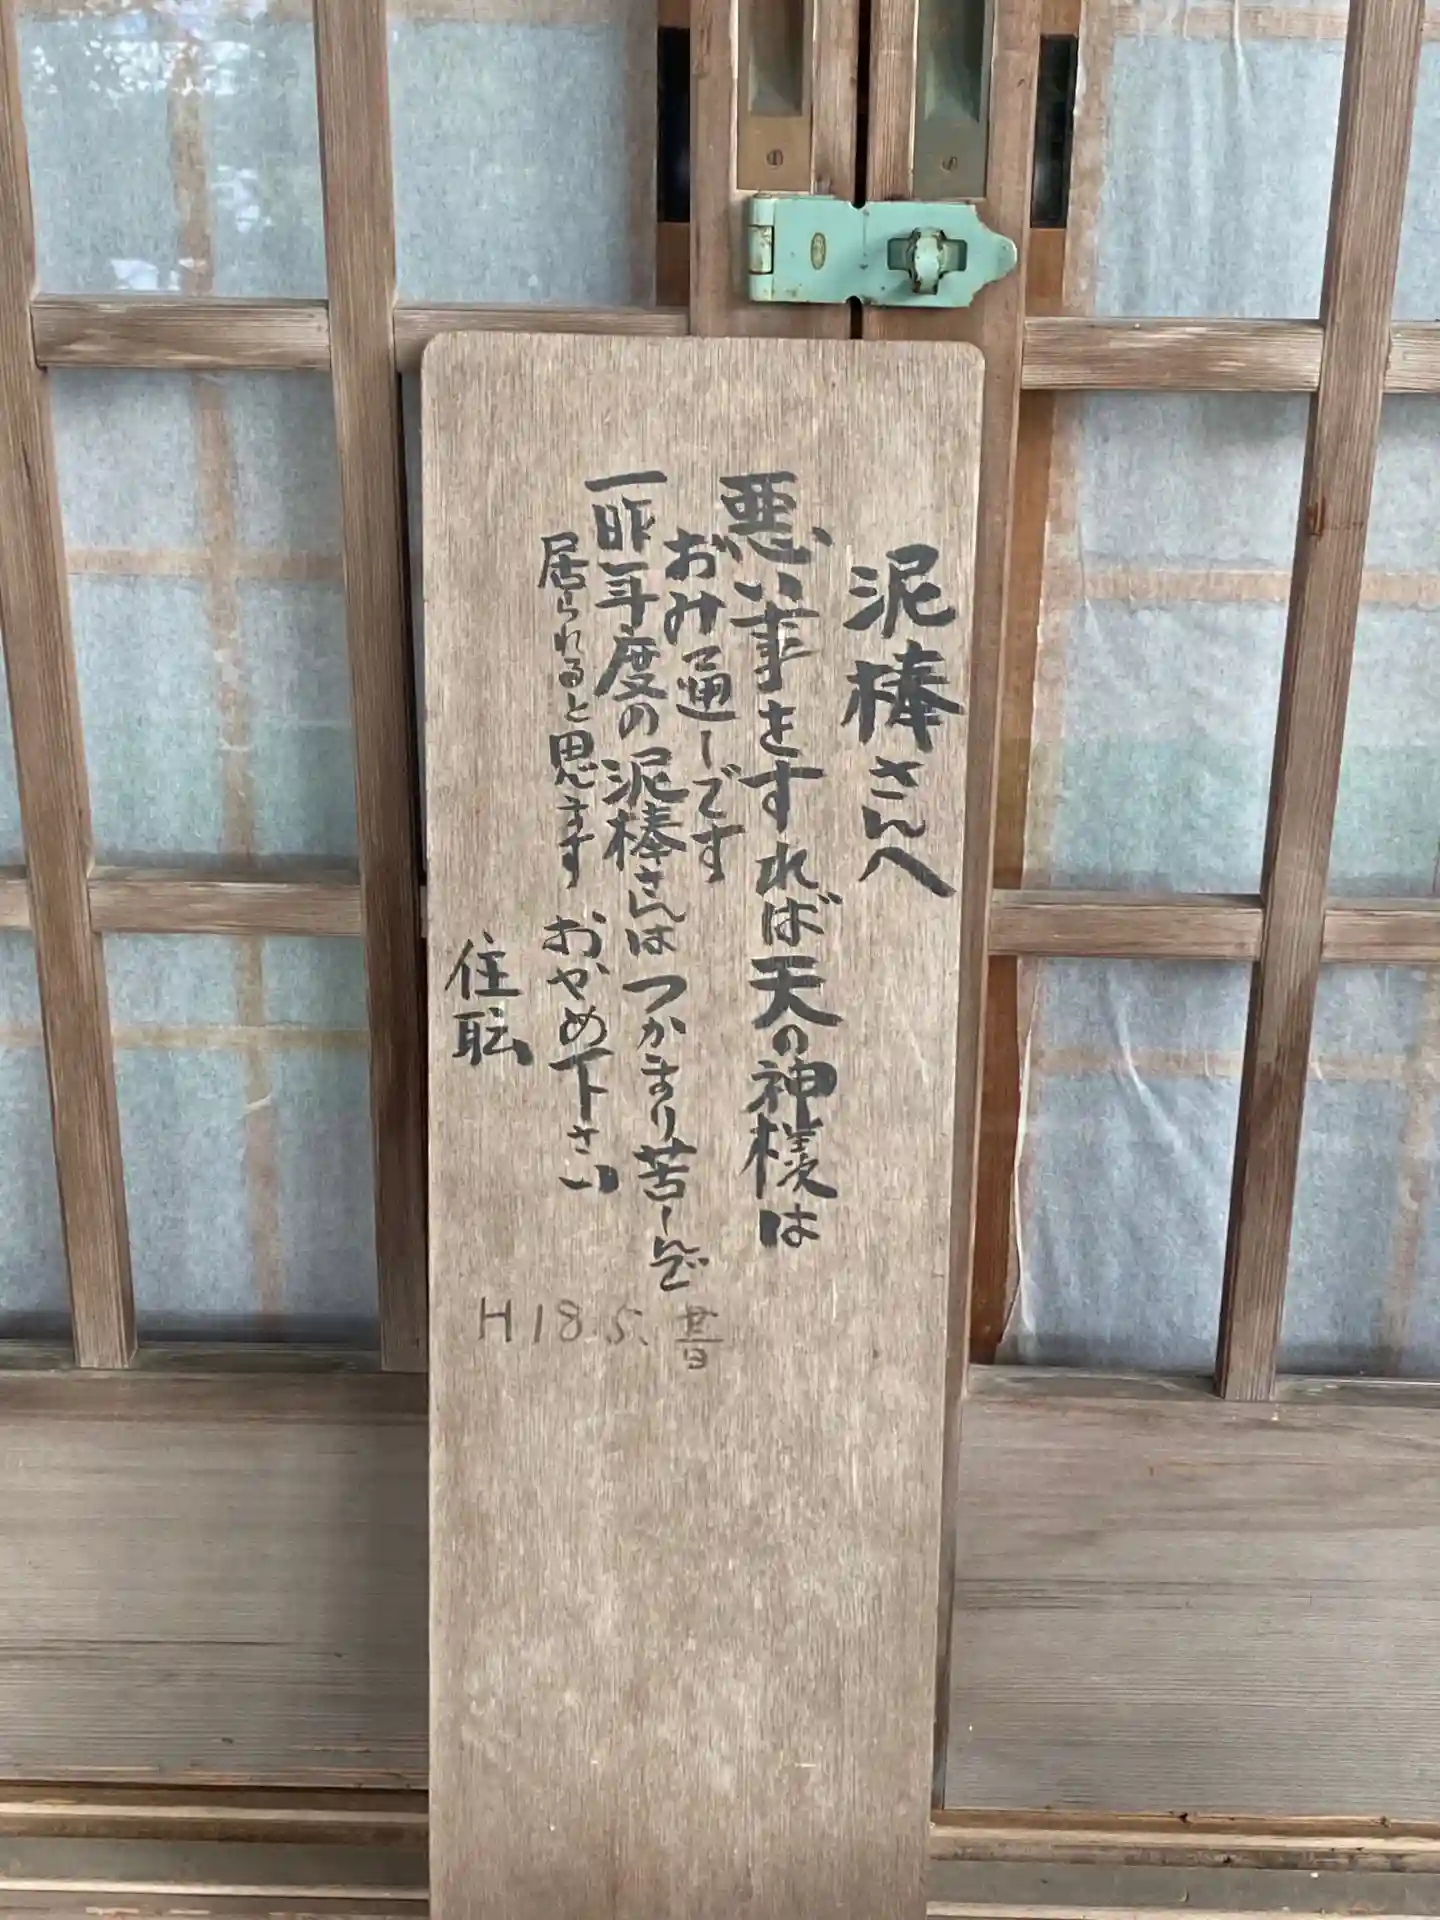 泥棒さんへ
悪い事をすれば天の神様は
おみ通しです
一昨年度の泥棒さんはつかまり苦しんで
居られると思います おやめ下さい
住職
H18.5.廿日